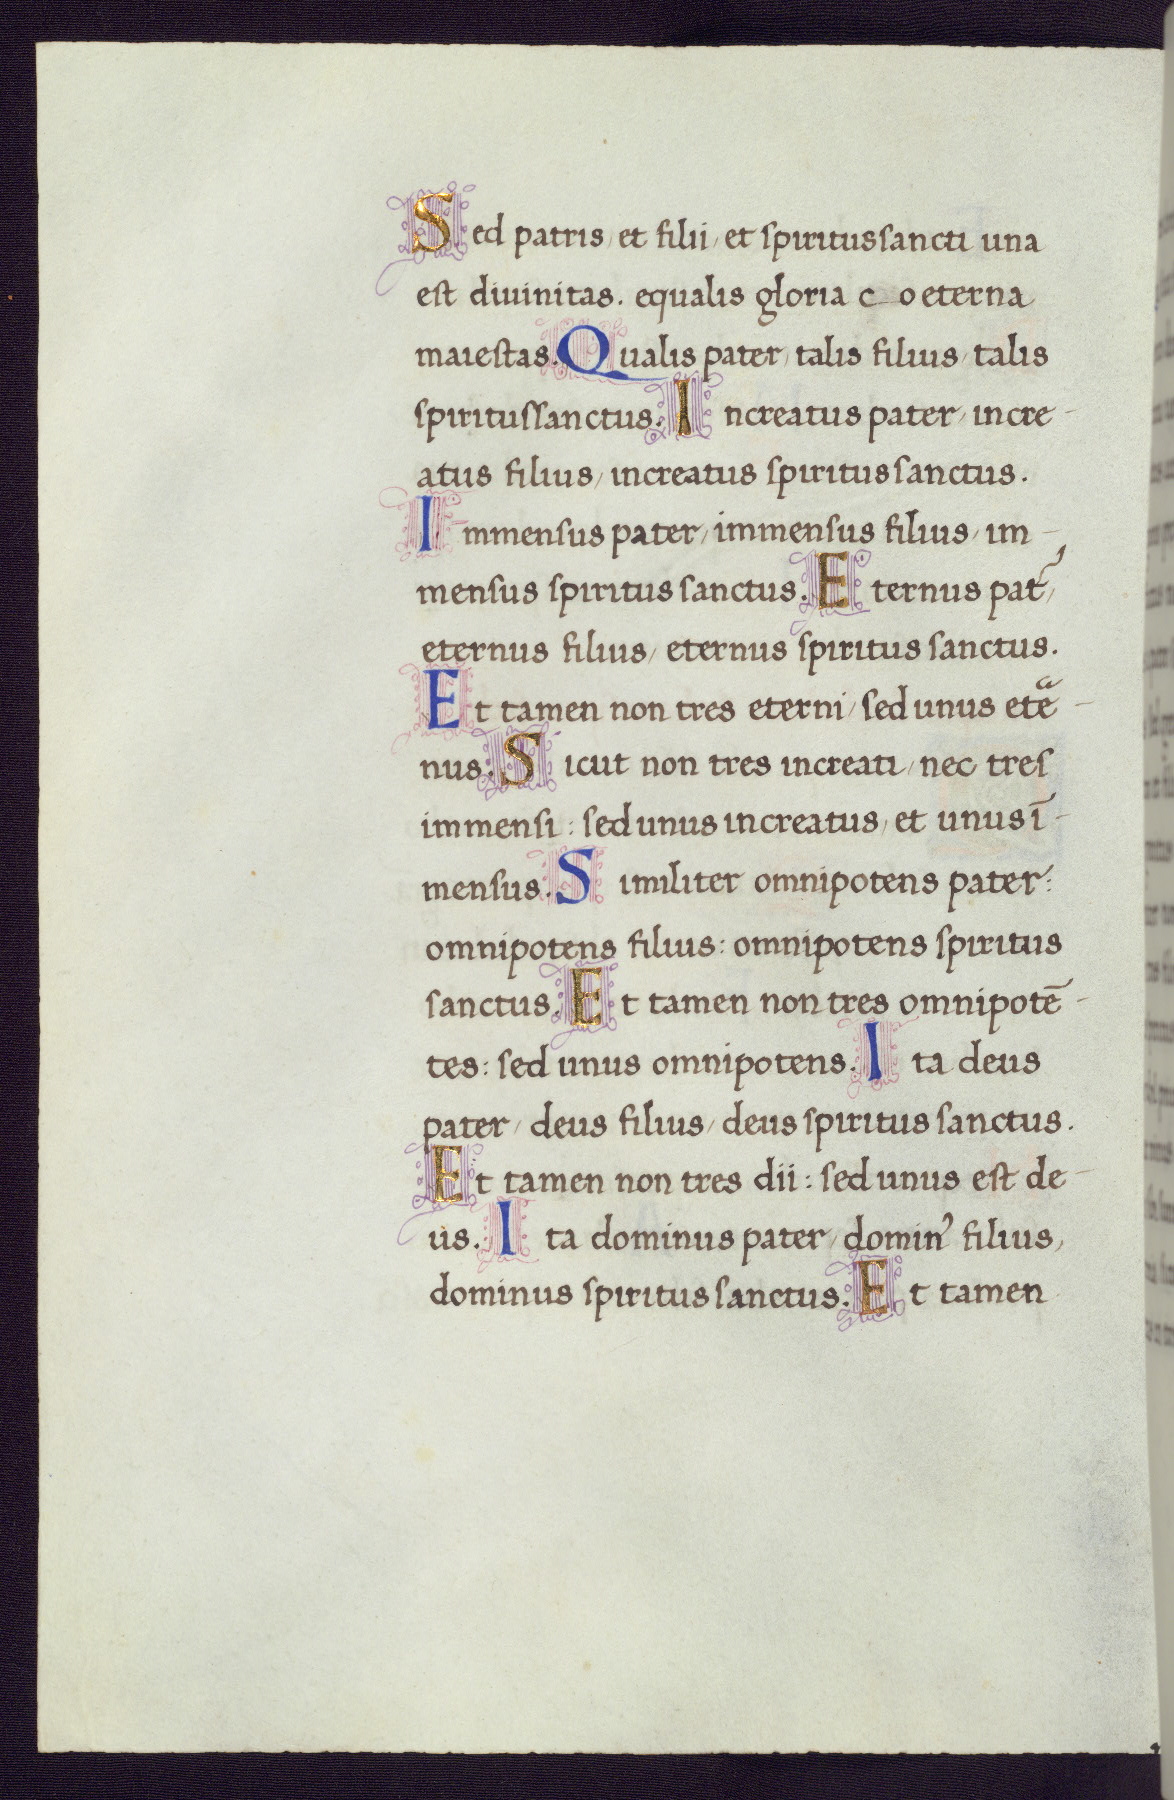 Sed patris, et filii, et spiritussancti una
est diuinitas. equalis gloria c oeterna
maiestas. Qualis pater, talis filius, talis
spiritussanctus. Increatus pater, incre-
atus filius, increatus spiritussanctus.
Immensus pater, immensus filius, im-
mensus spiritus sanctus. Eternus pat̄,
eternus filius, eternus spiritus sanctus.
Et tamen non tres eterni, sed unus ete-
nus. Sicut non tres increati, nec tres
immensi: sed unus increatus, et unus ī-
mensus. Similiter omnipotens pater:
omnipotens filius: omnipotens spiritus
sanctus. Et tamen non tres omnipotē-
tes: sed unus omnipotens. Ita deus
pater, deus filius, deus spiritus sanctus.
Et tamen non tres dii: sed unus est de-
us. Ita dominus pater, dominꝰ filius,
dominus spiritus sanctus. Et tamen